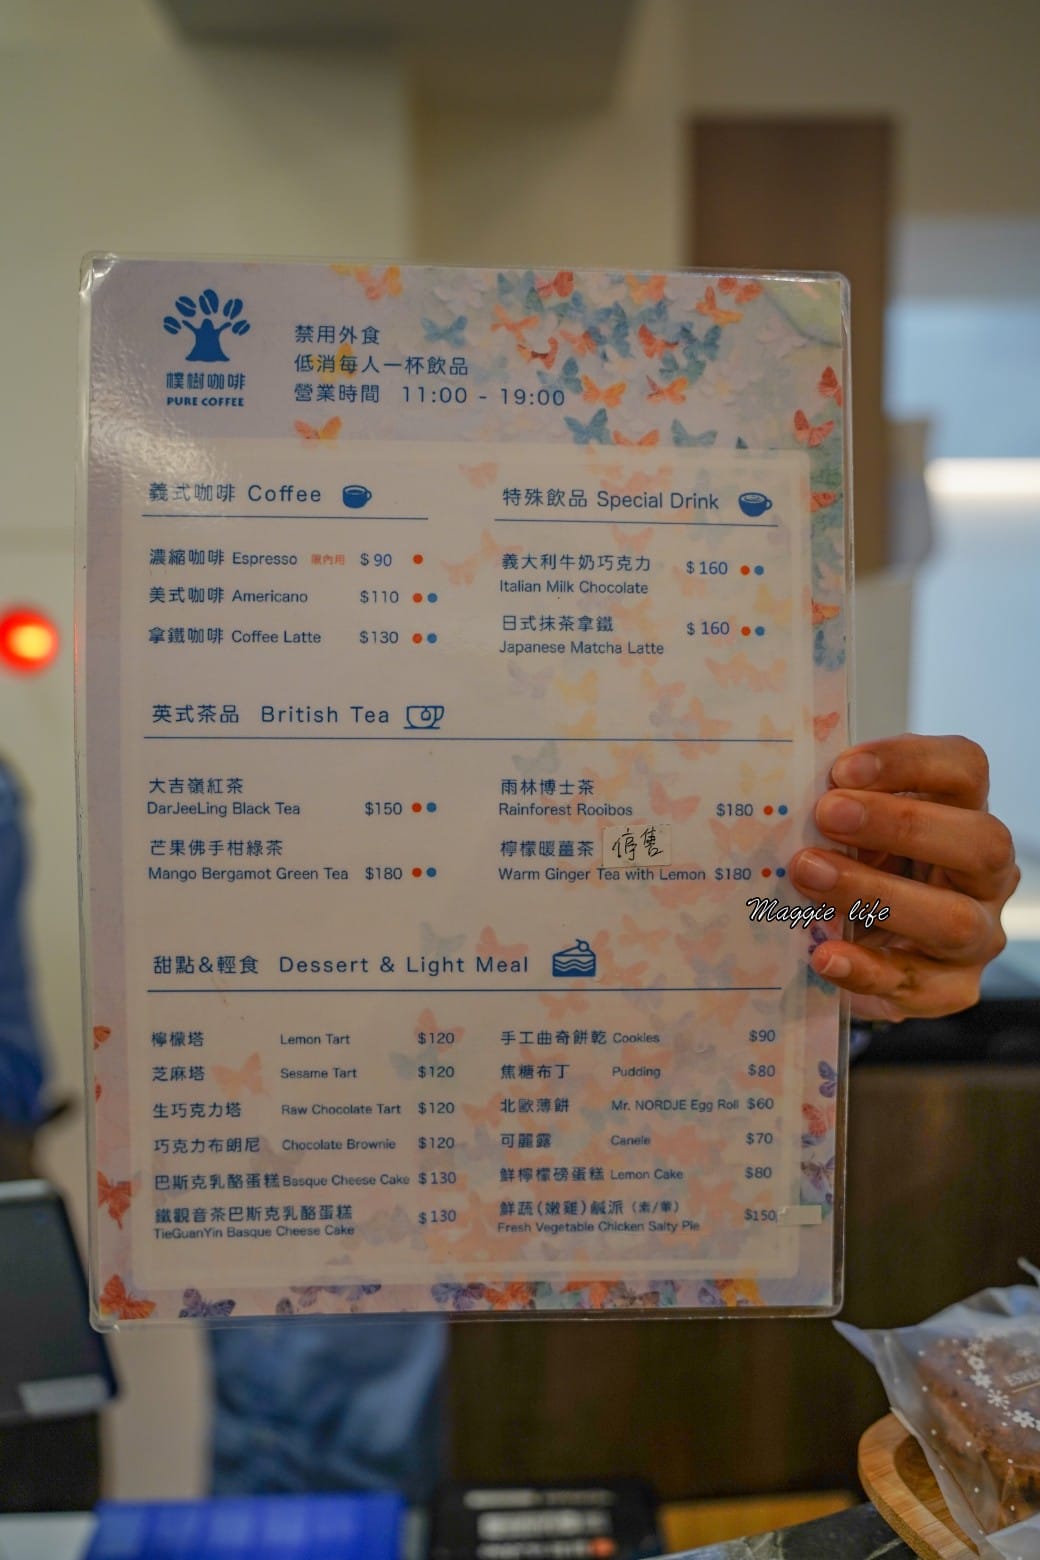 樸樹咖啡
PURE COFFEE
禁用外食
低消每人一杯飲品
營業時間 11:00 - 19:00
義式咖啡 Coffee
濃縮咖啡 Espresso 限內用 $90
美式咖啡 Americano $110
拿鐵咖啡 Coffee Latte $130
特殊飲品 Special Drink
義大利牛奶巧克力 $160
Italian Milk Chocolate
日式抹茶拿鐵 $160
Japanese Matcha Latte
英式茶品 British Tea
大吉嶺紅茶
DarJeeLing Black Tea $150
芒果佛手柑綠茶
Mango Bergamot Green Tea $180
雨林博士茶
Rainforest Rooibos $180
檸檬暖薑茶 停售
Warm Ginger Tea with Lemon $180
甜點&輕食 Dessert & Light Meal
檸檬塔 Lemon Tart $120
芝麻塔 Sesame Tart $120
生巧克力塔 Raw Chocolate Tart $120
巧克力布朗尼 Chocolate Brownie $120
巴斯克乳酪蛋糕 Basque Cheese Cake $130
鐵觀音茶巴斯克乳酪蛋糕 $130
TieGuanYin Basque Cheese Cake
手工曲奇餅乾 Cookies $90
焦糖布丁 Pudding $80
北歐薄餅 Mr. NORDJE Egg Roll $60
可麗露 Canele $70
鮮檸檬磅蛋糕 Lemon Cake $80
鮮蔬(嫩雞)鹹派 (素/葷) $150
Fresh Vegetable Chicken Salty Pie
Maggie life